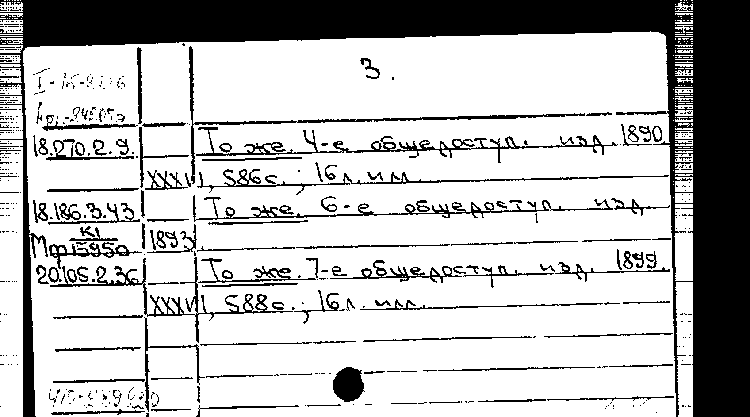 3.
18.270.2.9. То же. 4-е общедоступ. изд. 1890.
XXXVI, 586 с.; 16 л. илл.
18.186.3.43 То же. 6-е общедоступ. изд.
Мф К1/15950 1893.
20.105.2.36 То же. 7-е общедоступ. изд. 1899.
XXXVI, 588 с.; 16 л. илл.